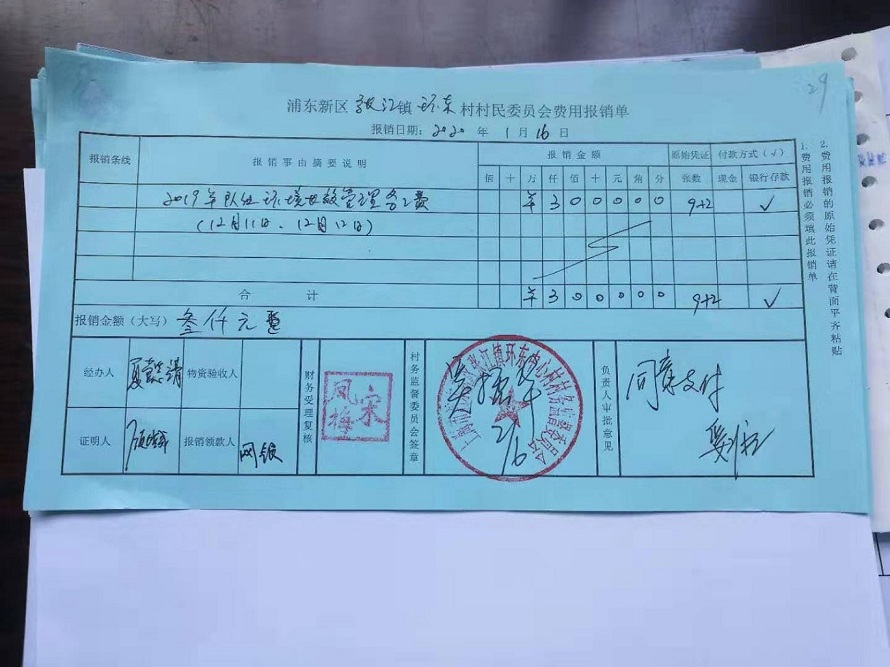 29
浦东新区 张江 镇 环东 村村民委员会费用报销单
报销日期: 2020 年 1 月 16 日
报销条线 报销事由摘要说明 报销金额 原始凭证 付款方式(√)
佰 十 万 仟 佰 十 元 角 分 张数 现金 银行存款
2019年队组环境 管理务工费 ¥ 3 0 0 0 0 0 9+2 √
(12月11日、12月12日)
合计 ¥ 3 0 0 0 0 0 9+2 √
报销金额(大写) 叁仟元整
经办人
物资验收人
证明人
报销领款人 网银
财务受理复核
宋凤梅
村务监督委员会签章
2/16
负责人审批意见
同意支付
1. 费用报销必须填此报销单
2. 费用报销的原始凭证请在背面平齐粘贴